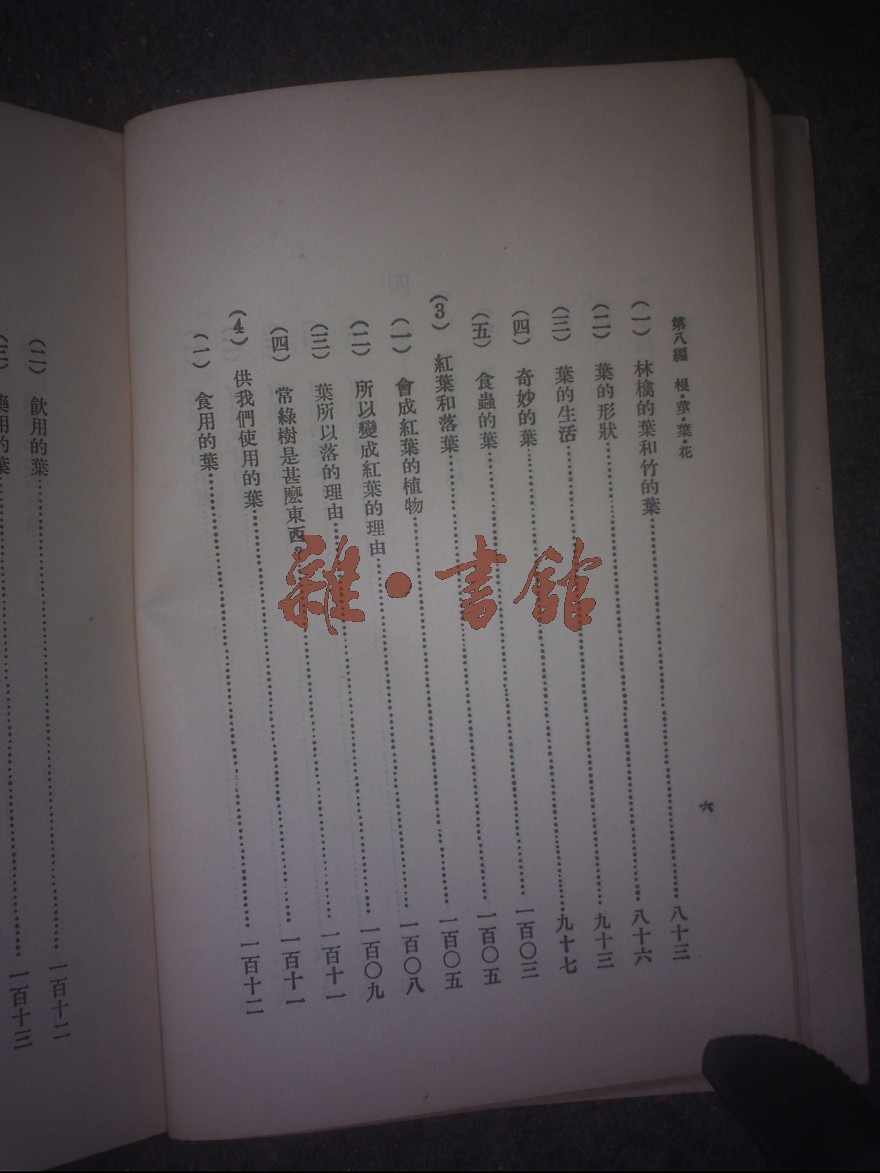 第八編 根·莖·葉·花 六
(一) 林檎的葉和竹的葉……八十三
(二) 葉的形狀……八十六
(三) 葉的生活……九十三
(四) 奇妙的葉……九十七
(五) 食蟲的葉……一百〇三
(3) 紅葉和落葉……一百〇五
(一) 會成紅葉的植物……一百〇五
(二) 所以變成紅葉的理由……一百〇八
(三) 葉所以落的理由……一百〇九
(四) 常綠樹是甚麽東西……一百十一
(4) 供我們使用的葉……一百十一
(一) 食用的葉……一百十二
(二) 飲用的葉……一百十二
(三) 藥用的葉……一百十三
雜·書館